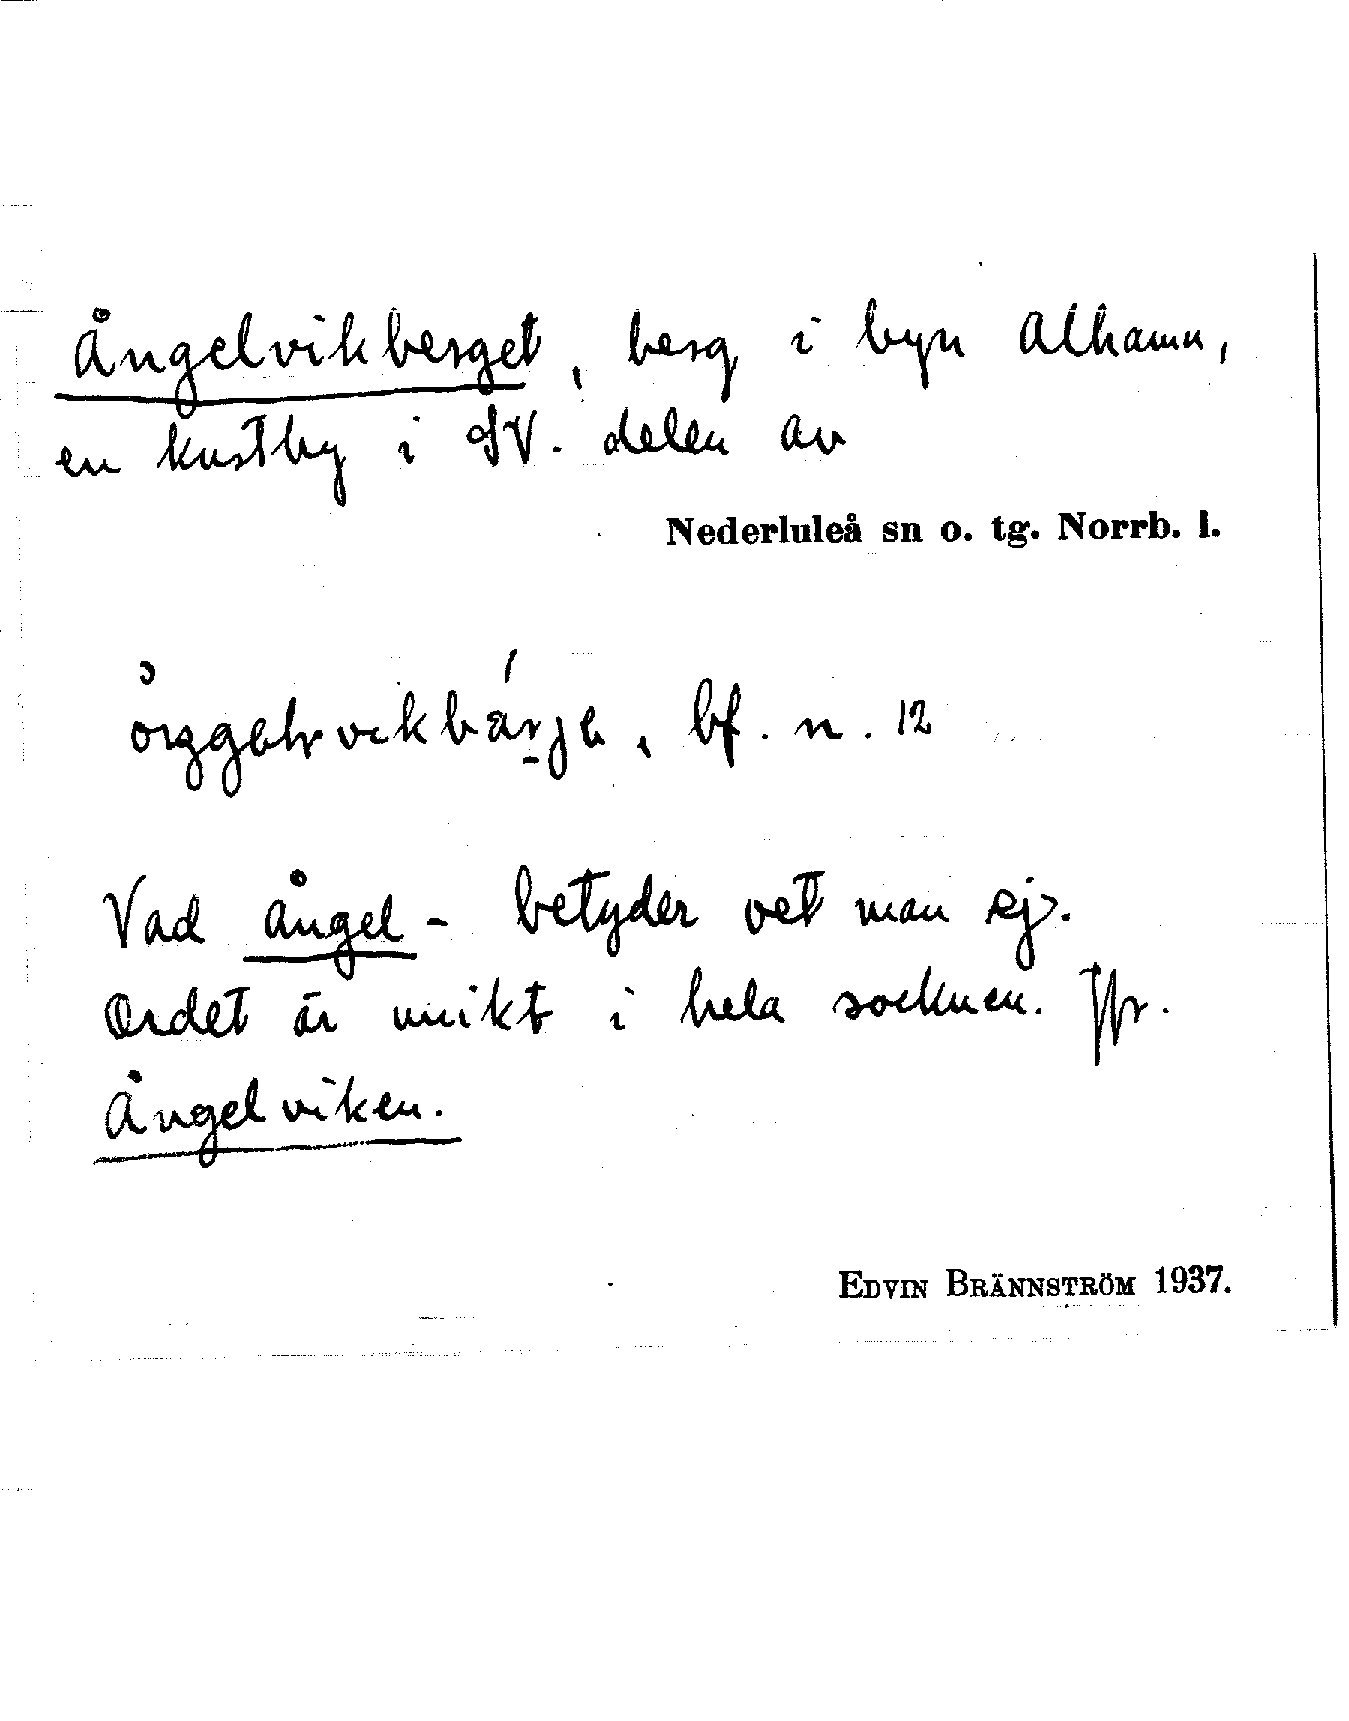 Ångelvikberget, berg i byn Alhamn,
en kustby i SV. delen av
Nederluleå sn o. tg. Norrb. l.
bf. n. 12
Vad ångel- betyder vet man ej.
Ordet är unikt i hela socknen. Jfr.
Ångelviken.
EDVIN BRÄNNSTRÖM 1937.